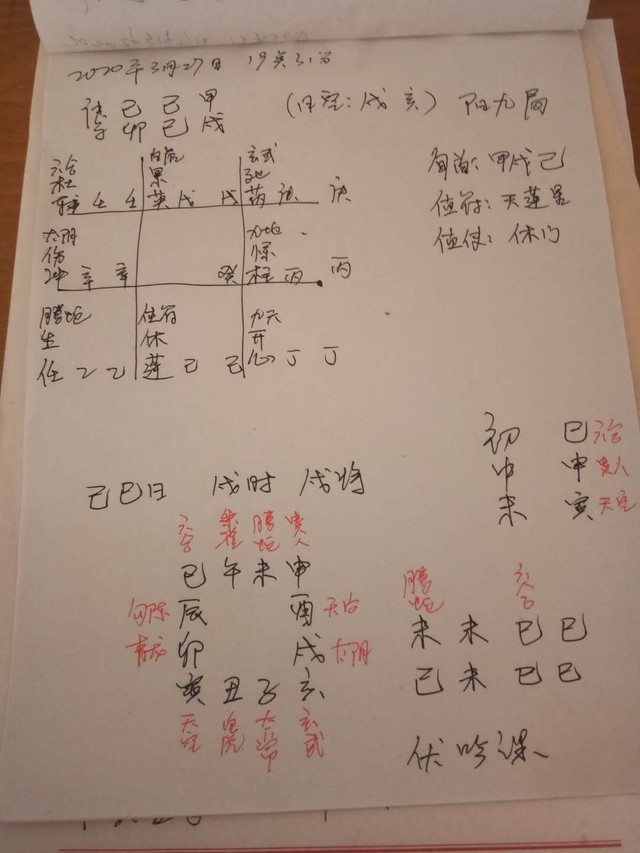 2020年3月27日 19点31分
庚 己 己 甲
子 卯 巳 戌 (日空:戌 亥) 阳九局
旬首:甲戌己
值符:天蓬星
值使:休门
六合 白虎 玄武
杜 景 死
辅 壬 壬 英 戊 戊 芮 庚 庚
太阴 九地
伤 惊
冲 辛 辛 癸 柱 丙 丙
腾蛇 值符 九天
生 休 开
任 乙 乙 蓬 己 己 心 丁 丁
初 巳 六合
中 申 贵人
末 寅 天空
己巳日 戌时 戌将
六合 朱雀 腾蛇 贵人
巳 午 未 申
勾陈 辰 酉 天后
青龙 卯 戌 太阴
寅 丑 子 亥
天空 白虎 太常 玄武
腾蛇 六合
未 未 巳 巳
己 未 巳 巳
伏吟课